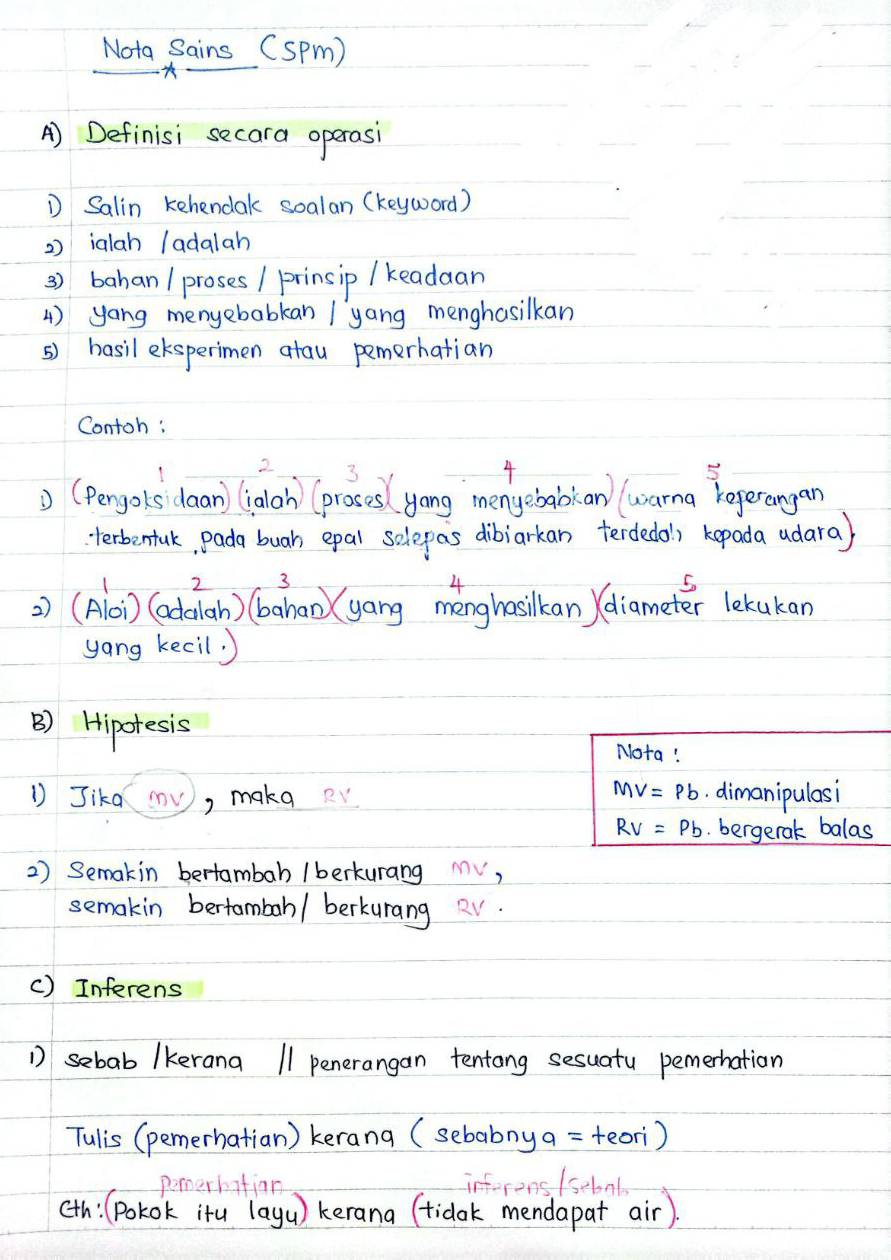 Nota Sains (SPM)
A) Definisi secara operasi
1) Salin kehendak soalan (keyword)
2) ialah / adalah
3) bahan / proses / prinsip / keadaan
4) yang menyebabkan / yang menghasilkan
5) hasil eksperimen atau pemerhatian
Contoh :
1 2 3 4 5
1) (Pengoksidaan) (ialah) (proses) (yang menyebabkan) (warna keperangan
terbentuk pada buah epal selepas dibiarkan terdedah kepada udara)
1 2 3 4 5
2) (Aloi) (adalah) (bahan) (yang menghasilkan) (diameter lekukan
yang kecil.)
B) Hipotesis
Nota :
MV = Pb. dimanipulasi
RV = Pb. bergerak balas
1) Jika MV, maka RV
2) Semakin bertambah / berkurang MV,
semakin bertambah / berkurang RV.
C) Inferens
1) sebab / kerana // penerangan tentang sesuatu pemerhatian
Tulis (pemerhatian) kerana (sebabnya = teori)
pemerhatian inferens / sebab
Cth : (Pokok itu layu) kerana (tidak mendapat air).